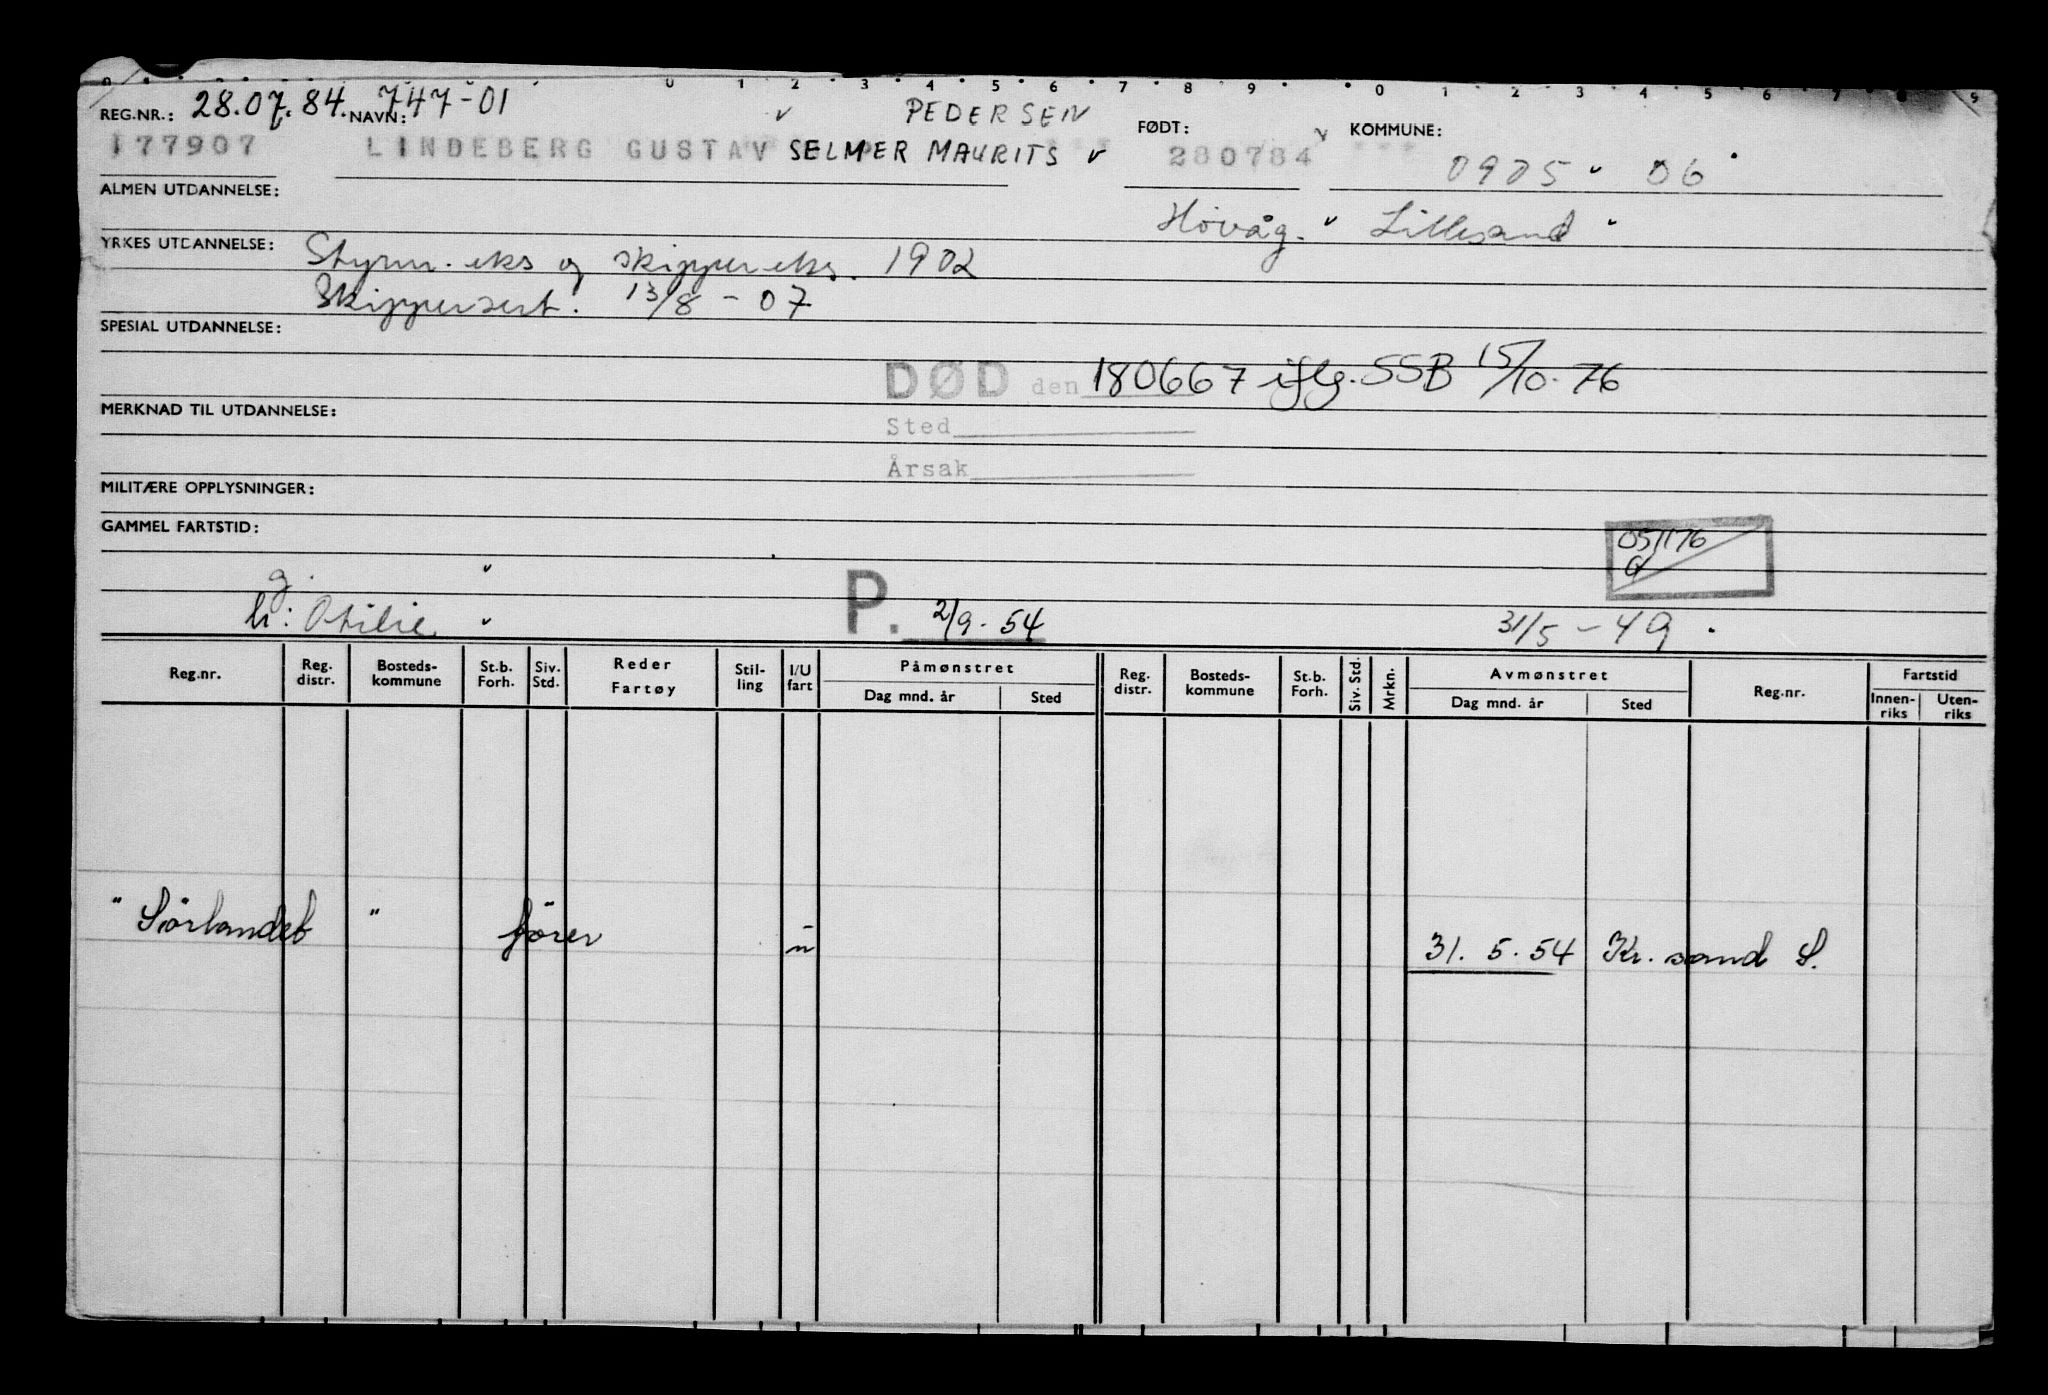 0 1 2 3 4 5 6 7 8 9 0 1 2 3 4 5 6 7 8 9
REG.NR.: 28.07.84. NAVN: 747-01 PEDERSEN FØDT: KOMMUNE:
177907 LINDEBERG GUSTAV SELMER MAURITS 280784 *** 0905 06
ALMEN UTDANNELSE: Høvåg. Lillesand
YRKES UTDANNELSE: Styrm. eks og skippereks. 1902
Skippersert. 13/8 - 07
SPESIAL UTDANNELSE:
DØD den 180667 iflg. SSB 15/10.76
MERKNAD TIL UTDANNELSE:
Sted
Årsak
MILITÆRE OPPLYSNINGER:
GAMMEL FARTSTID:
051176
g.
h: Otilie P. 2/9.54 31/5 - 49.
Reg.nr. Reg. distr. Bosteds-kommune St.b. Forh. Siv. Std. Reder Fartøy Stil-ling I/U fart Påmønstret Dag mnd. år Sted Reg. distr. Bosteds-kommune St.b. Forh. Siv. Std. Mrkn. Avmønstret Dag mnd. år Sted Reg.nr. Fartstid Innen-riks Uten-riks
"Sörlandet" förer u 31.5.54 Kr.sand S.